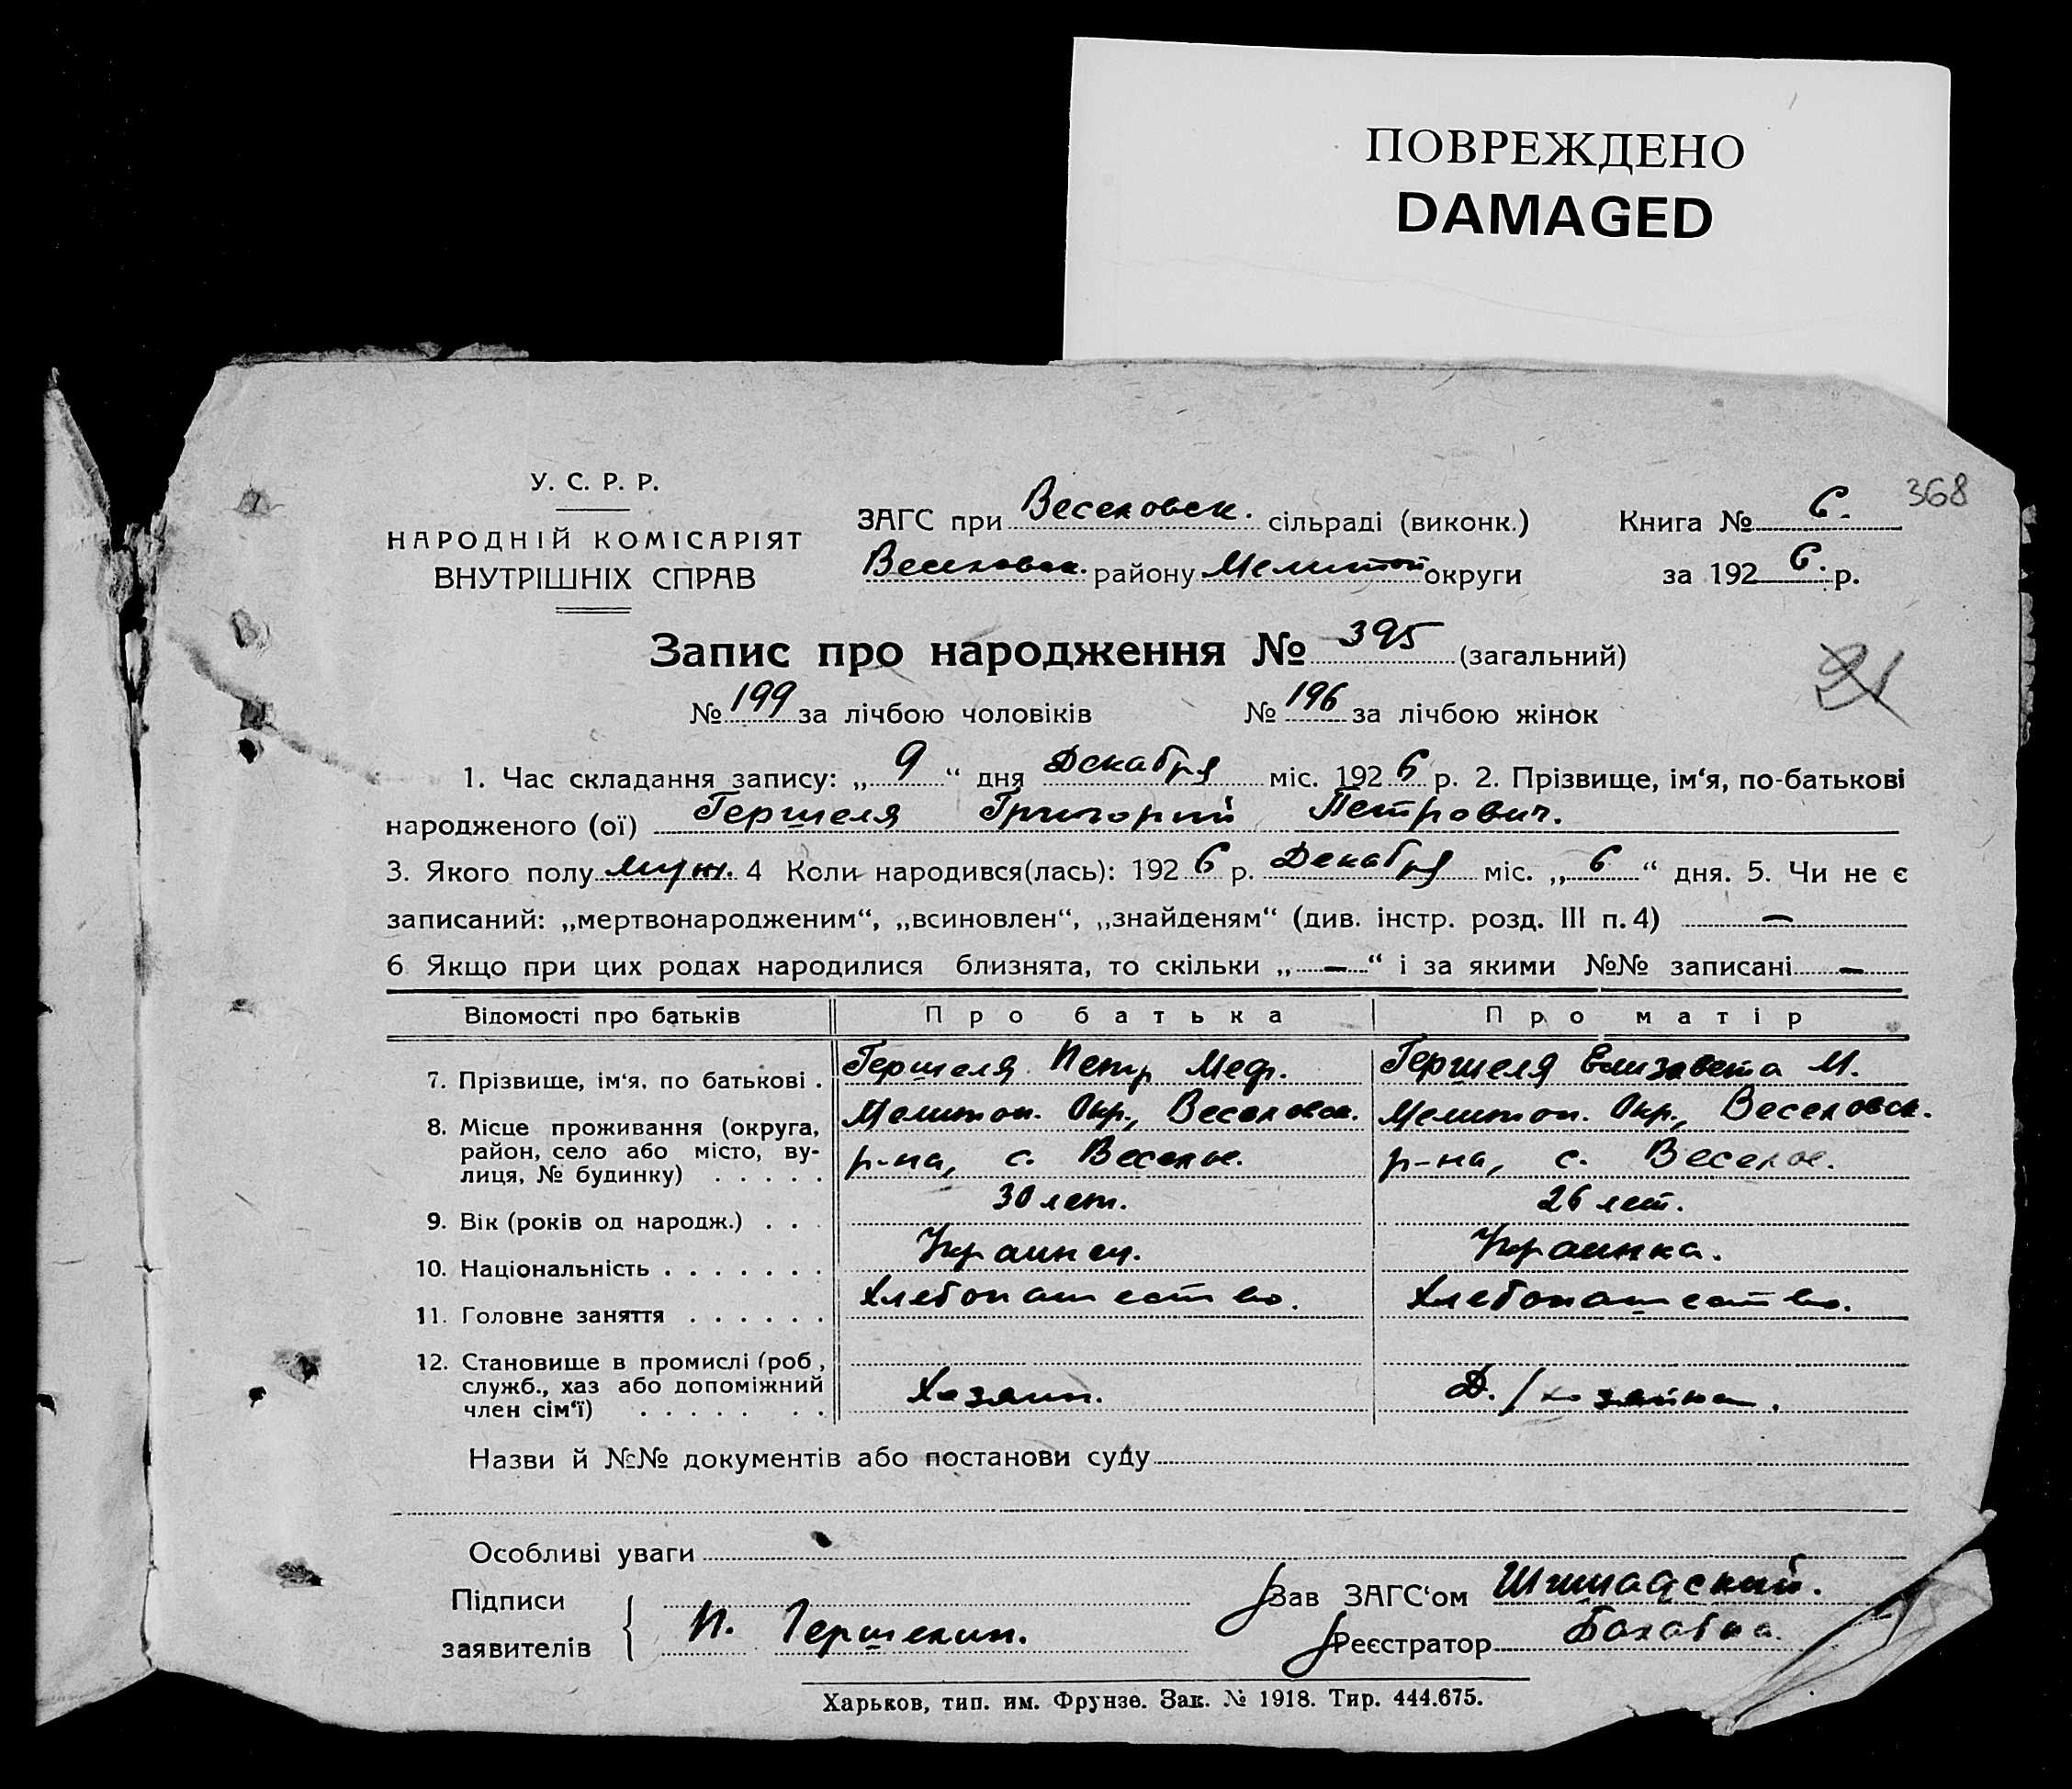 ПОВРЕЖДЕНО
DAMAGED
368
У. С. Р. Р.
НАРОДНІЙ КОМІСАРІЯТ
ВНУТРІШНІХ СПРАВ
ЗАГС при Веселовск. сільраді (виконк.)
Веселовск. району Мелитоп округи
Книга № 6.
за 1926. р.
Запис про народження № 395 (загальний)
№ 199 за лічбою чоловіків № 196 за лічбою жінок
21
1. Час складання запису: „ 9 “ дня Декабря міс. 1926 р. 2. Прізвище, ім‘я, по-батькові
народженого (ої) Гершеля Григорий Петрович.
3. Якого полу муж. 4 Коли народився(лась): 1926 р. Декабря міс. „ 6 “ дня. 5. Чи не є
записаний: „мертвонародженим“, „всиновлен“, „знайденям“ (див. інстр. розд. III п. 4) —
6 Якщо при цих родах народилися близнята, то скільки „ — “ і за якими №№ записані —
Відомості про батьків Про батька Про матір
7. Прізвище, ім‘я, по батькові . Гершеля Петр Меф. Гершеля Елизавета М.
8. Місце проживання (округа, Мелитоп. Окр., Веселовск. Мелитоп. Окр., Веселовск.
район, село або місто, ву- р-на, с. Веселое. р-на, с. Веселое.
лиця, № будинку) . . . . .
9. Вік (років од народж.) . . . 30 лет. 26 лет.
10. Національність . . . . . . . Украинец. Украинка.
11. Головне заняття . . . . . . Хлебопашество. Хлебопашество.
12. Становище в промислі (роб ,
служб., хаз або допоміжний Хозяин. Д./хозяйка.
член сім‘ї) . . . . . . .
Назви й №№ документів або постанови суду
Особливі уваги
Підписи
заявителів П. Гершелин.
Зав ЗАГС‘ом
Реєстратор
Харьков, тип. им. Фрунзе. Зак. № 1918. Тир. 444.675.